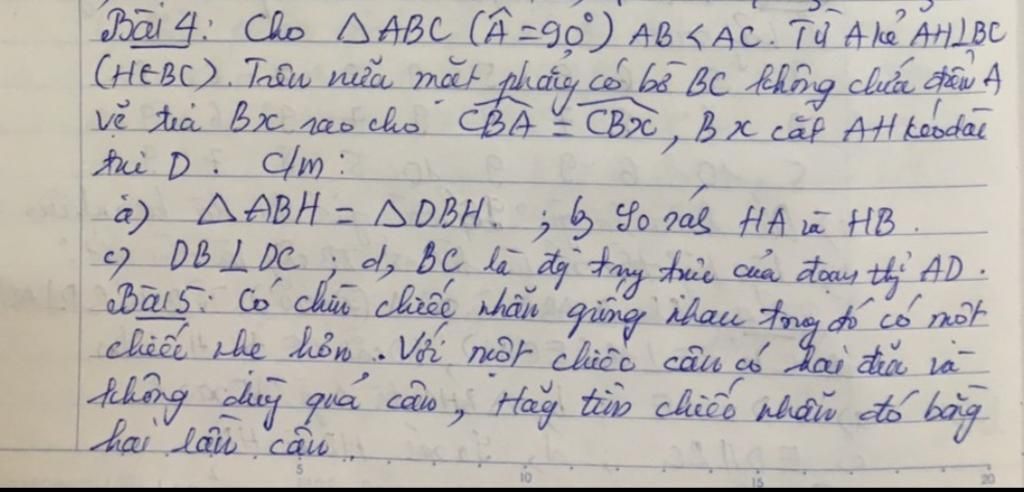 Bài 4: Cho △ABC (Â = 90°) AB < AC. Từ A kẻ AH⊥BC
(H∈BC). Trên nửa mặt phẳng có bờ BC không chứa điểm A
vẽ tia Bx sao cho CBA = CBx, Bx cắt AH kéo dài
tại D. C/m:
a) △ABH = △DBH. ; b, So sánh HA và HB.
c) DB⊥DC ; d, BC là đg trung trực của đoạn thg AD.
Bài 5: Có chín chiếc nhẫn giống nhau trong đó có một
chiếc nhẹ hơn. Với một chiếc cân có hai đĩa và
không dùng quả cân, Hãy tìm chiếc nhẫn đó bằng
hai lần cân.
5 10 15 20